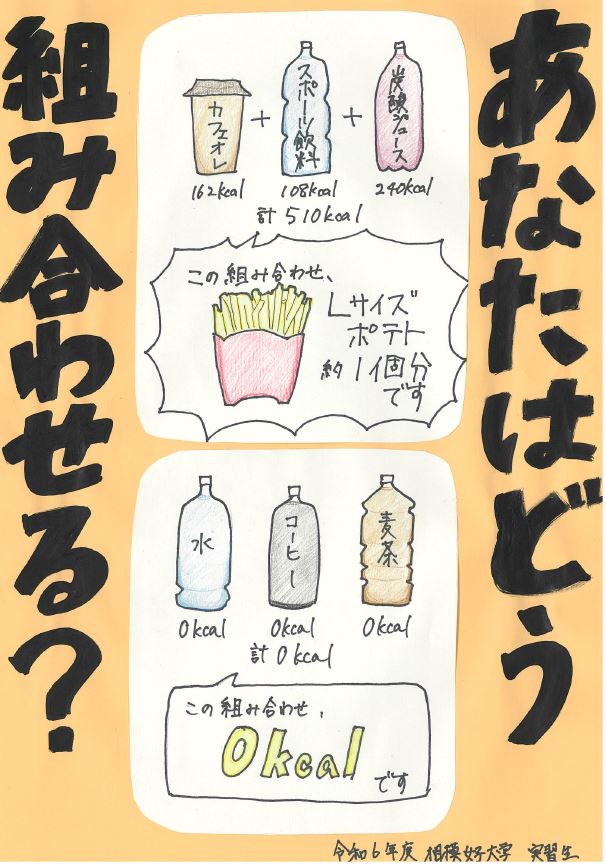 あなたはどう
組み合わせる?
カフェオレ
+
スポーツ飲料
+
炭酸ジュース
162kcal
108kcal
240kcal
計510kcal
この組み合わせ、
Lサイズ
ポテト
約1個分
です
水
コーヒー
麦茶
0kcal
0kcal
0kcal
計0kcal
この組み合わせ、
0kcal
です
令和6年度 相模女子大学 実習生